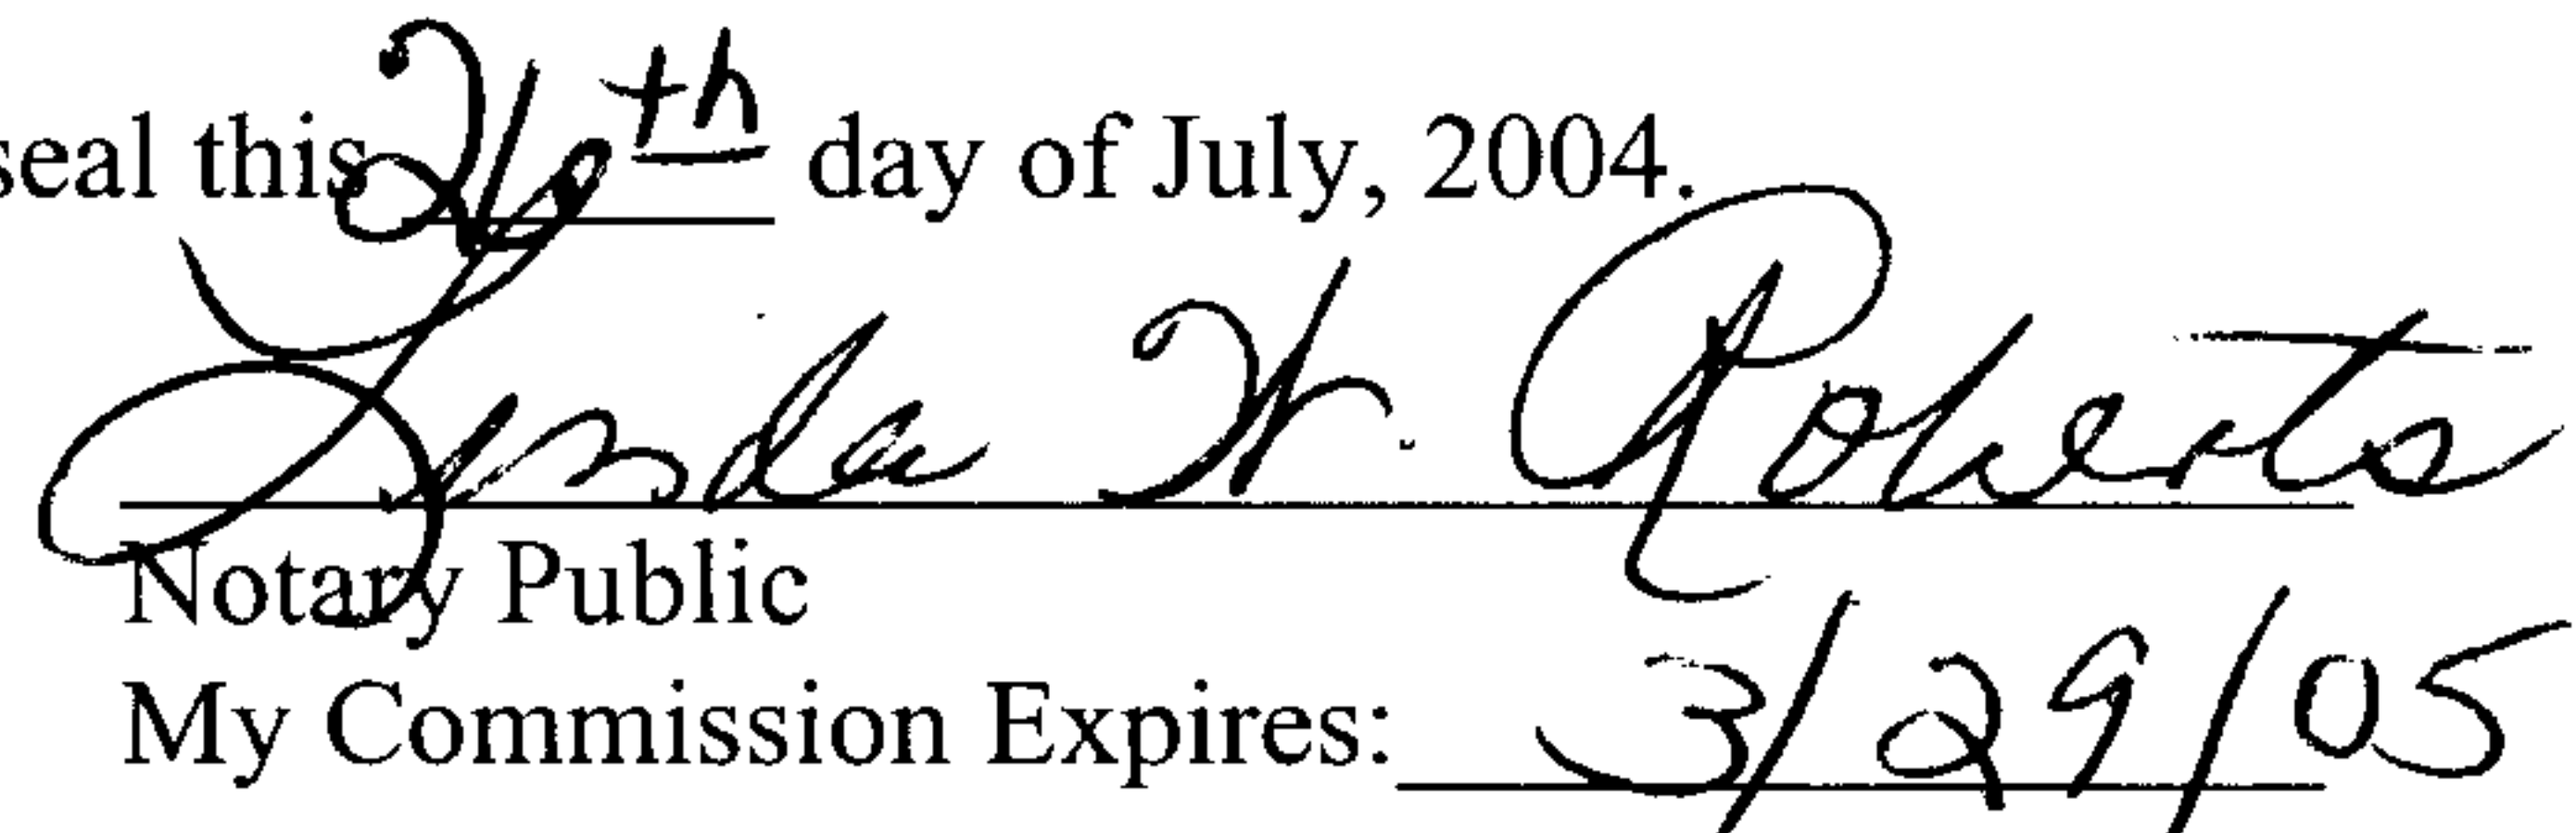 seal this 26th day of July, 2004.
Lynda W. Roberts
Notary Public
My Commission Expires: 3/29/05